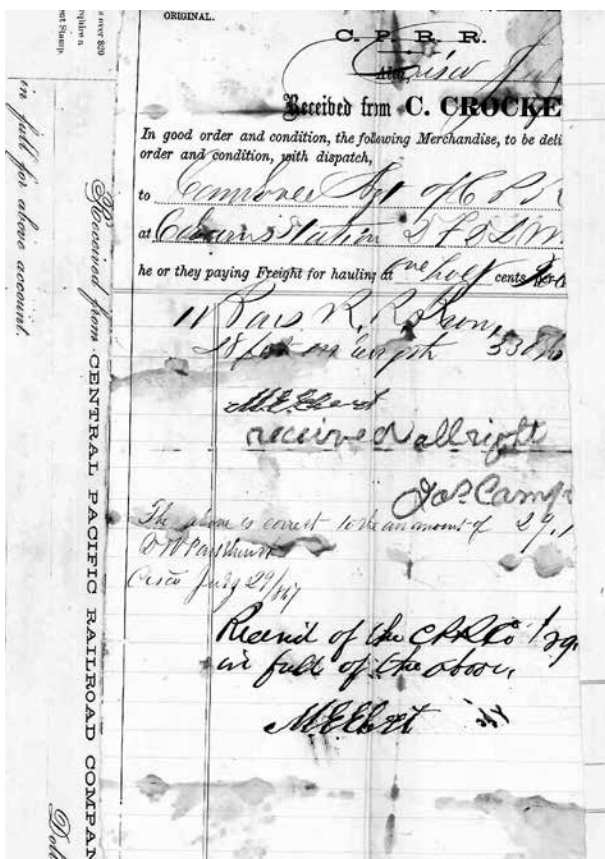 ORIGINAL.
C. P. R. R.
Cisco July
Received from C. CROCKE
In good order and condition, the following Merchandise, to be deli
order and condition, with dispatch,
to Agt of C P R
at Coburns Station
he or they paying Freight for hauling at one half cents
11 Bars R. R. Iron,
28 feet in length
M. E. Ebert
received all right
Jas. Camp
The above is correct to the amount of 29.1
Cisco July 29/867
Received of the C P R R Co
in full of the above,
M E Ebert
t over $20
equire a
ent Stamp.
Received from CENTRAL PACIFIC RAILROAD COMPAN
in full for above account.
Doll